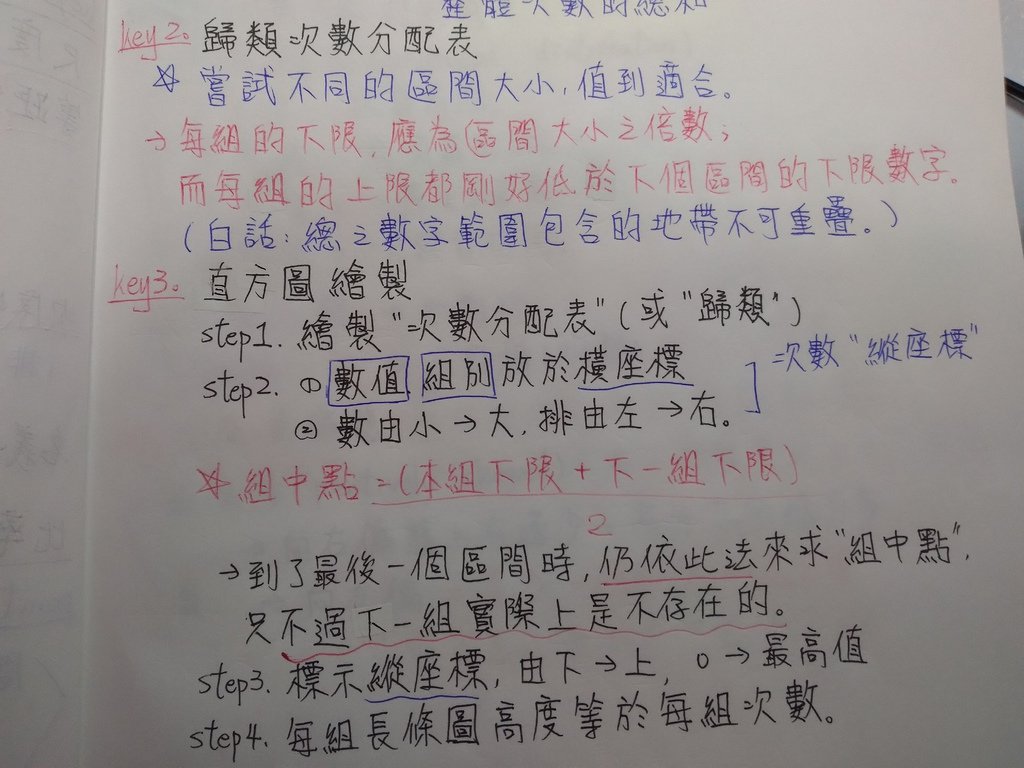 整體次數的總和
key2. 歸類次數分配表
☆ 嘗試不同的區間大小,值到適合。
→ 每組的下限,應為區間大小之倍數;
而每組的上限都剛好低於下個區間的下限數字。
(白話:總之數字範圍包含的地帶不可重疊。)
key3. 直方圖繪製
step1. 繪製"次數分配表"(或"歸類")
step2. ① 數值 組別 放於橫座標
② 數由小→大,排由左→右。
=次數"縱座標"
☆ 組中點=(本組下限+下一組下限)
2
→到了最後一個區間時,仍依此法來求"組中點",
只不過下一組實際上是不存在的。
step3. 標示縱座標,由下→上, 0→最高值
step4. 每組長條圖高度等於每組次數。